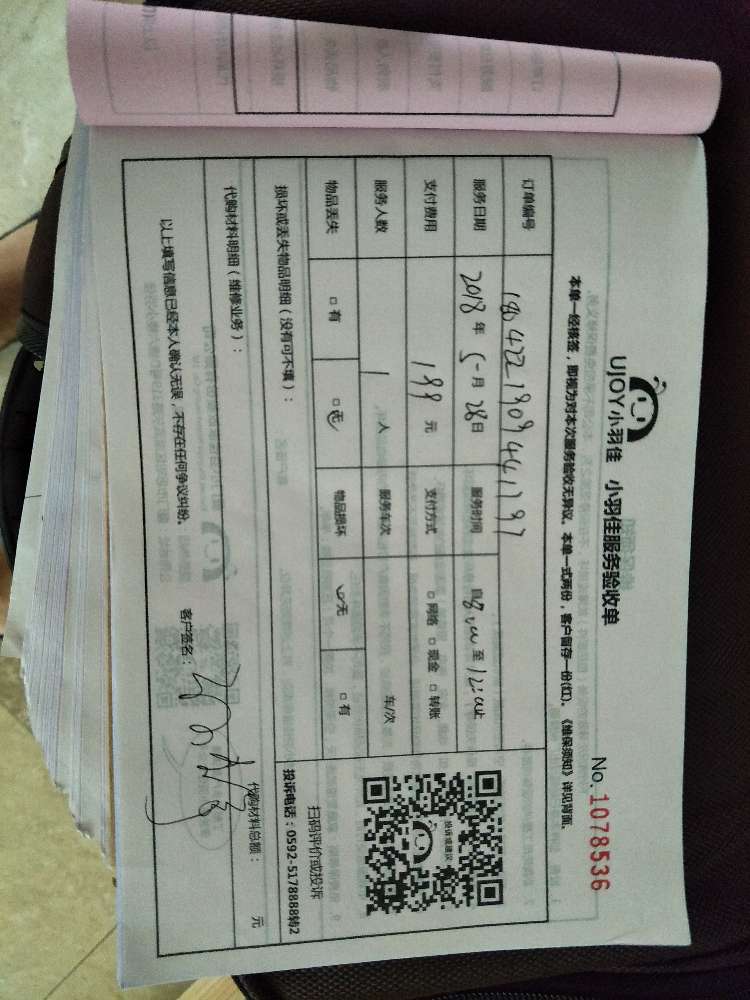 UJOY小羽佳 小羽佳服务验收单
No. 1078536
本单一经核签，即视为对本次服务验收无异议。本单一式两份，客户留存一份(红)。《维保须知》详见背面。
订单编号
服务日期 2018年 5月 28日 服务时间 自8:00至12:00止
支付费用 199 元 支付方式 □网络 □现金 □转账
服务人数 1 人 服务车次 车/次
物品丢失 □有 □无 物品损坏 □无 □有
损坏或丢失物品明细（没有可不填）：
代购材料明细（维修业务）：
代购材料总额： 元
以上填写信息已经本人确认无误，不存在任何争议纠纷。 客户签名：
投诉或建议
扫码评价或投诉
投诉电话：0592-5178888转2